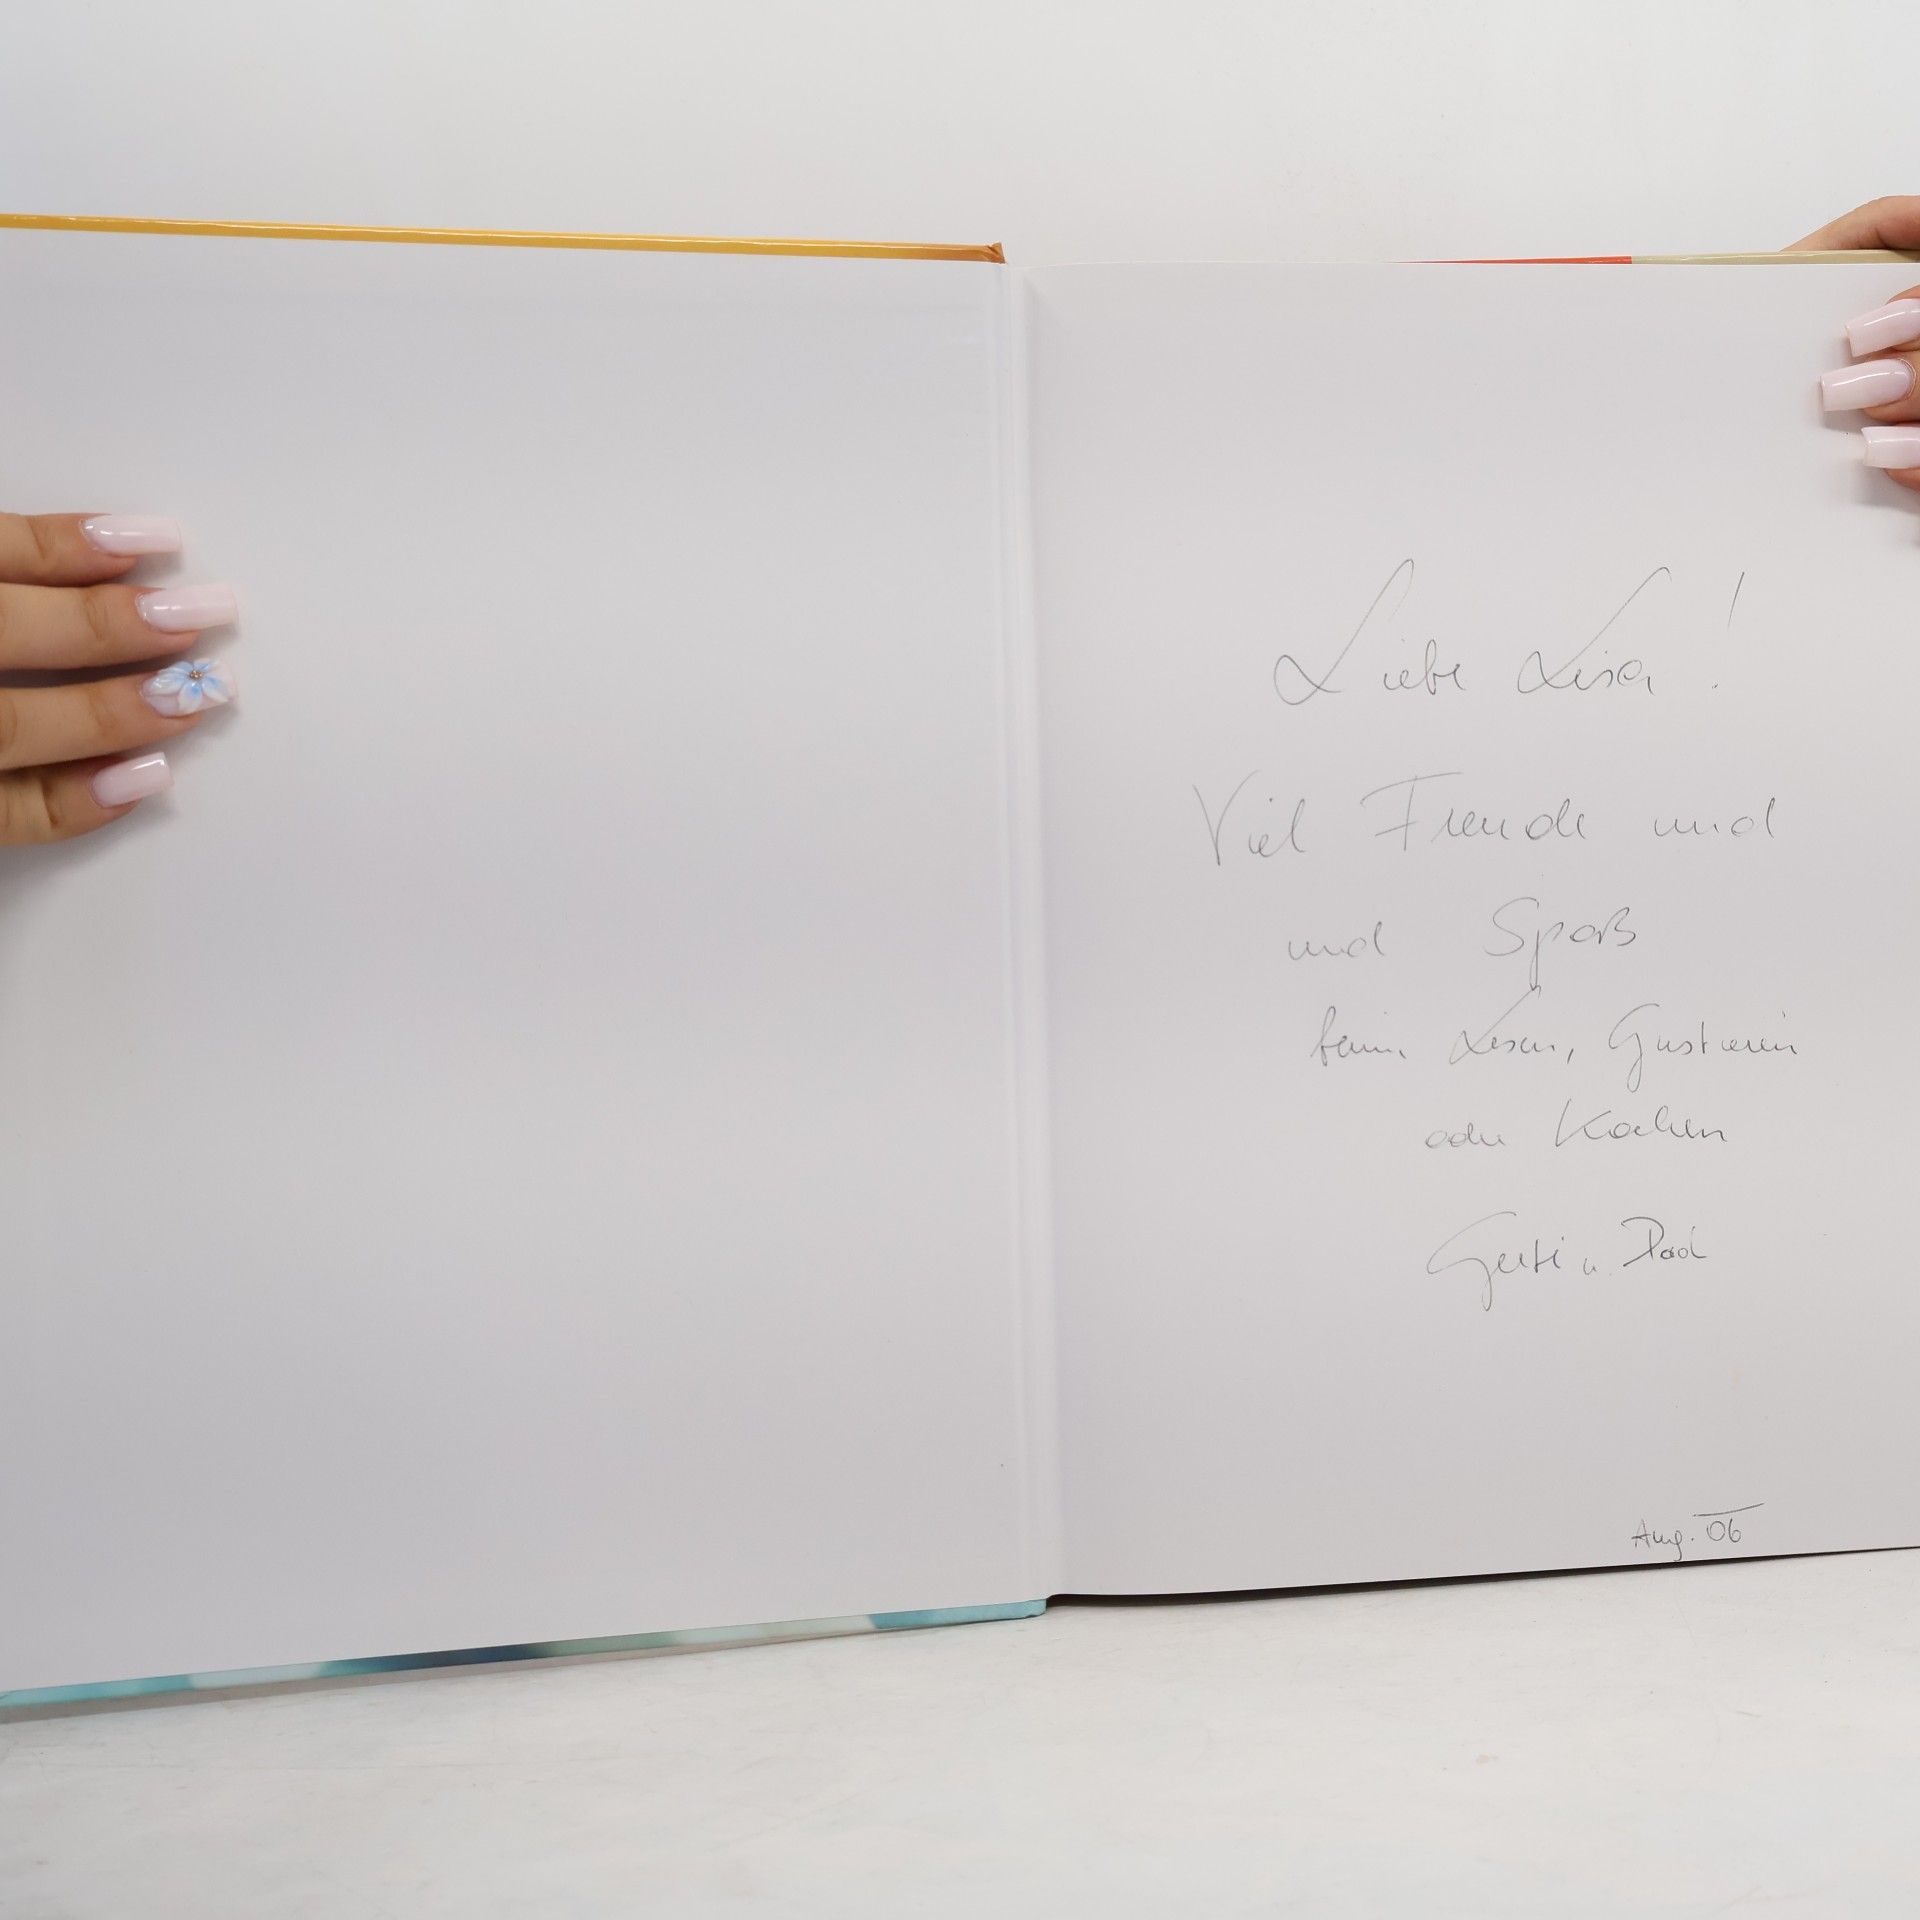 Liebe Lisa!
Viel Freude und
und Spaß
beim Lesen, Gustieren
oder Kochen
Gerti u. Dad
Aug. 06